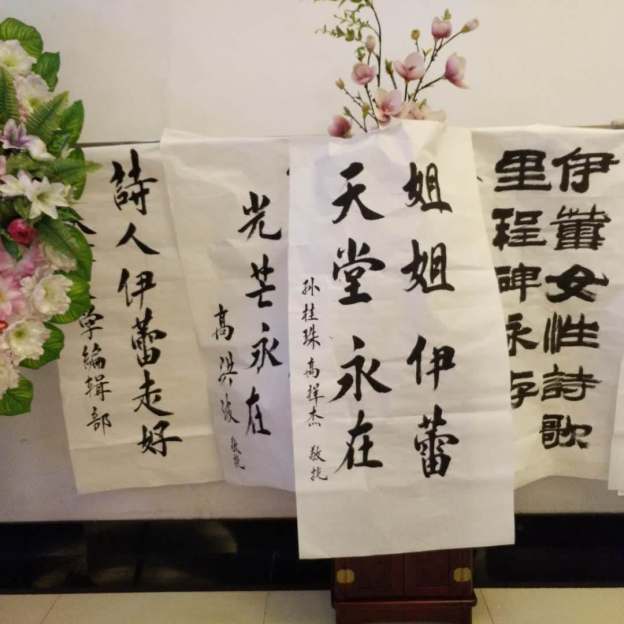 詩人伊蕾走好
学編輯部
光芒永在
高洪波 敬挽
姐姐 伊蕾
天堂永在
孙桂珠 高祥杰 敬挽
伊蕾女性詩歌
里程碑永存